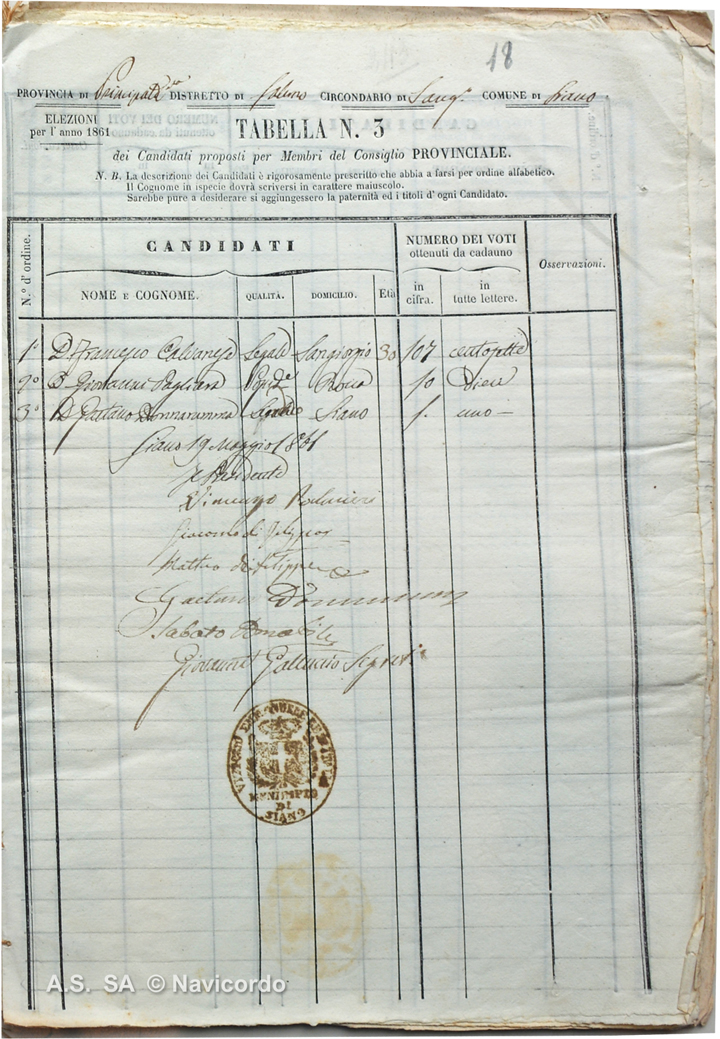 18
PROVINCIA DI Principato DISTRETTO DI Salerno CIRCONDARIO DI Sangº COMUNE DI Siano
ELEZIONI
per l' anno 1861
TABELLA N. 3
dei Candidati proposti per Membri del Consiglio PROVINCIALE.
N. B. La descrizione dei Candidati è rigorosamente prescritto che abbia a farsi per ordine alfabetico.
Il Cognome in ispecie dovrà scriversi in carattere maiuscolo.
Sarebbe pure a desiderare si aggiungessero la paternità ed i titoli d' ogni Candidato.
N.º d' ordine. CANDIDATI NUMERO DEI VOTI
ottenuti da cadauno Osservazioni.
NOME E COGNOME. QUALITÀ. DOMICILIO. Età in
cifra. in
tutte lettere.
1º D. Francesco Calvanese Legale Sangiorgio 30 107 centosette
2º D. Giovanni Pagliara Roca 10 diece
3º D. Gaetano Donnarumma Siano 1. uno
Siano 19 Maggio 1861
Il Presidente
Vincenzo
Giacomo di Filippo
Matteo di Filippo
Gaetano Donnarumma
Sabato
Giovanni Galluccio Segret.º
VITTORIO EMANUELE RE D'ITALIA
MUNICIPIO
DI
SIANO
A.S. SA © Navicordo